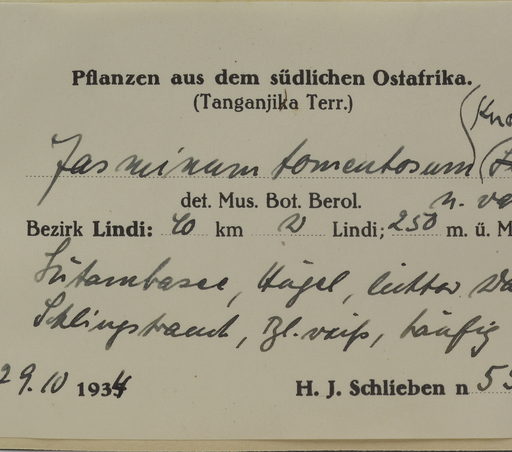 Pflanzen aus dem südlichen Ostafrika.
(Tanganjika Terr.)
Jasminum tomentosum
det. Mus. Bot. Berol.
Bezirk Lindi: 40 km W Lindi; 250 m. ü. M
Hügel, lichter
Schlingstrauch, Bl. weiß, häufig
29.10 1934
H. J. Schlieben n